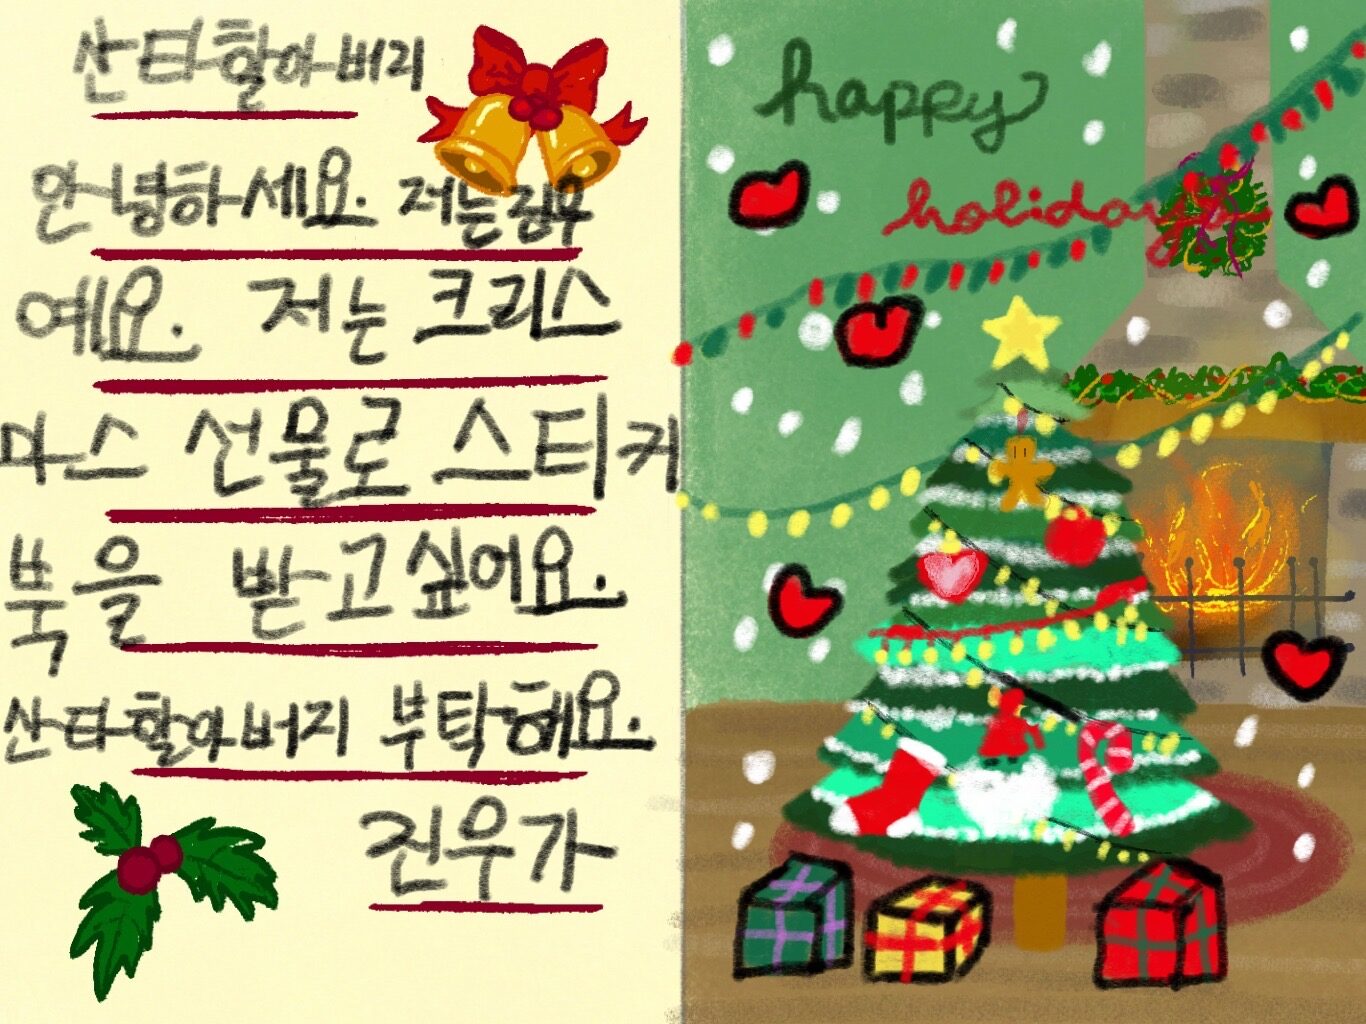 산타할아버지
안녕하세요. 저는 진우
예요. 저는 크리스
마스 선물로 스티커
북을 받고싶어요.
산타할아버지 부탁해요.
진우가
happy
holidays